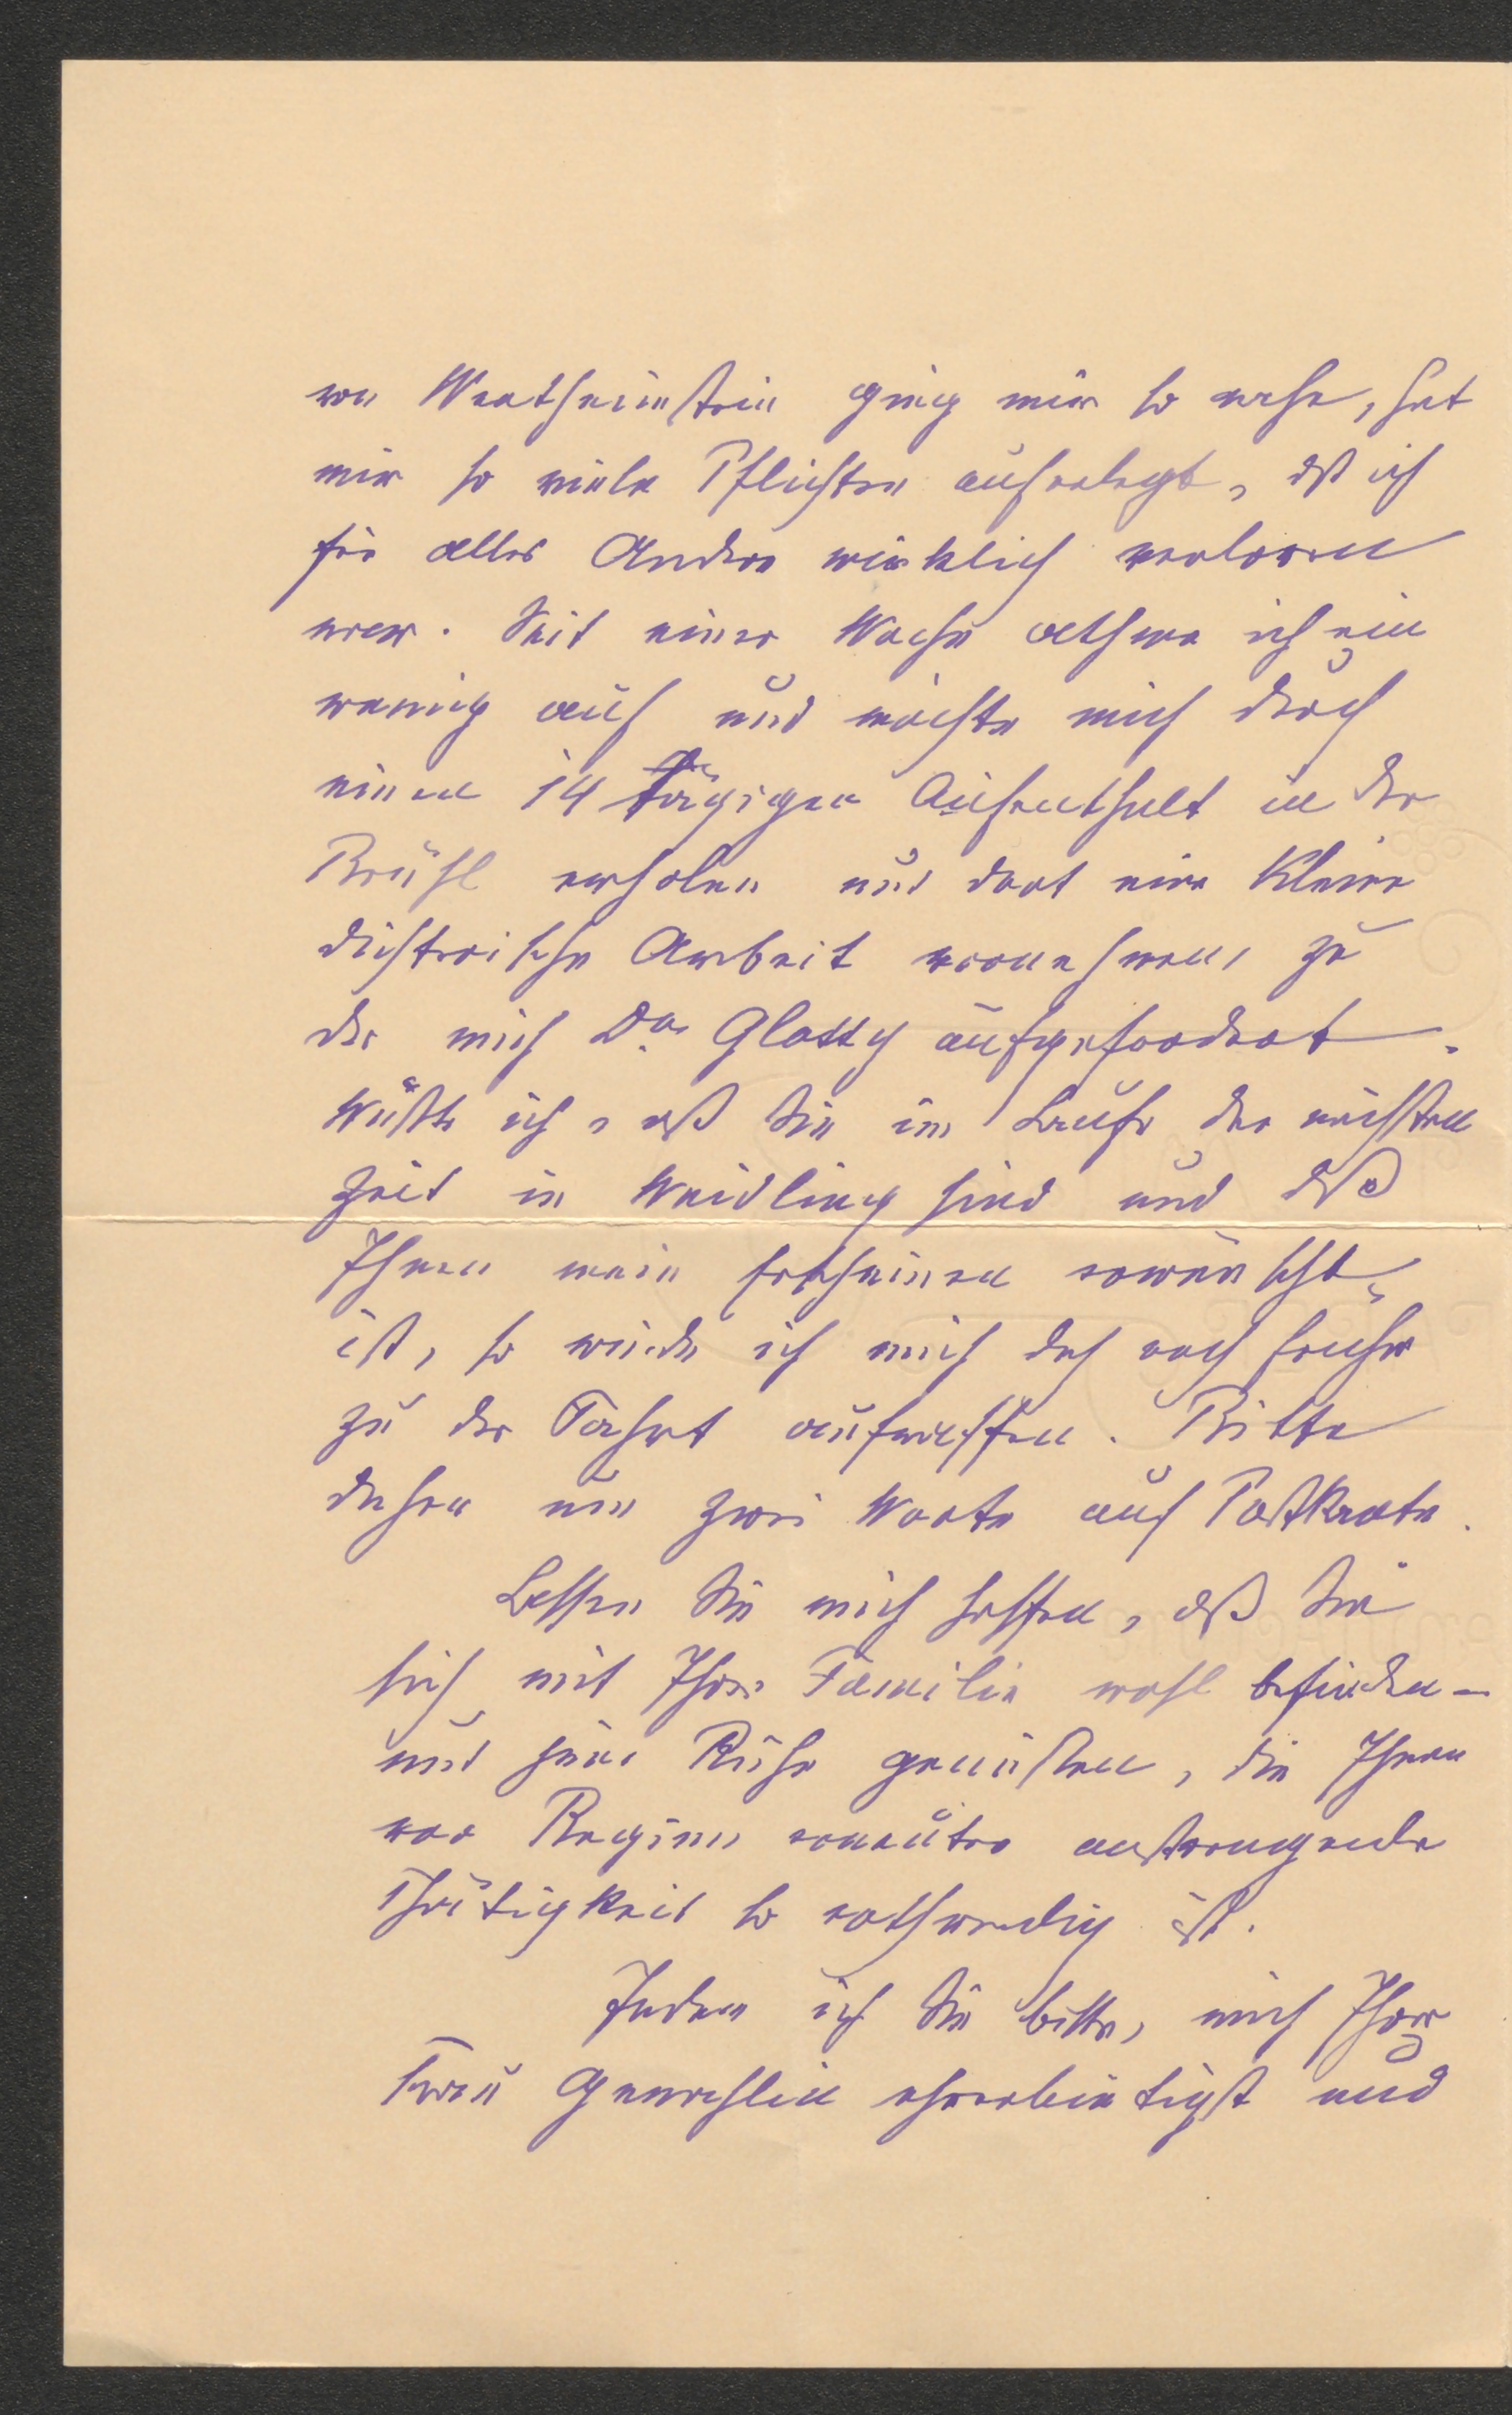 von Wertheimstein ging mir so nahe, hat
mir so viele Pflichten auferlegt, dß ich
für alles Andere wirklich verloren
war. Seit einer Woche athme ich ein
wenig auf und möchte mich durch
einen 14 tägigen Aufenthalt in der
Brühl erholen und dort eine kleine
dichterische Arbeit vornehmen, zu
der mich Dr. Glossy aufgefordert.
Wüßte ich, dß Sie im Laufe der nächsten
Zeit in Weidling sind und dß
Ihnen mein Erscheinen erwünscht
ist, so würde ich mich doch noch früher
zu der Fahrt aufraffen. Bitte
daher um zwei Worte auf Postkarte.
Lassen Sie mich hoffen, dß Sie
sich mit Ihrer Familie wohl befinden –
und jene Ruhe genießen, die Ihnen
vor Beginn erneuter anstrengender
Thätigkeit so nothwendig ist.
Indem ich Sie bitte, mich Ihrer
Frau Gemahlin ehrerbietigst und